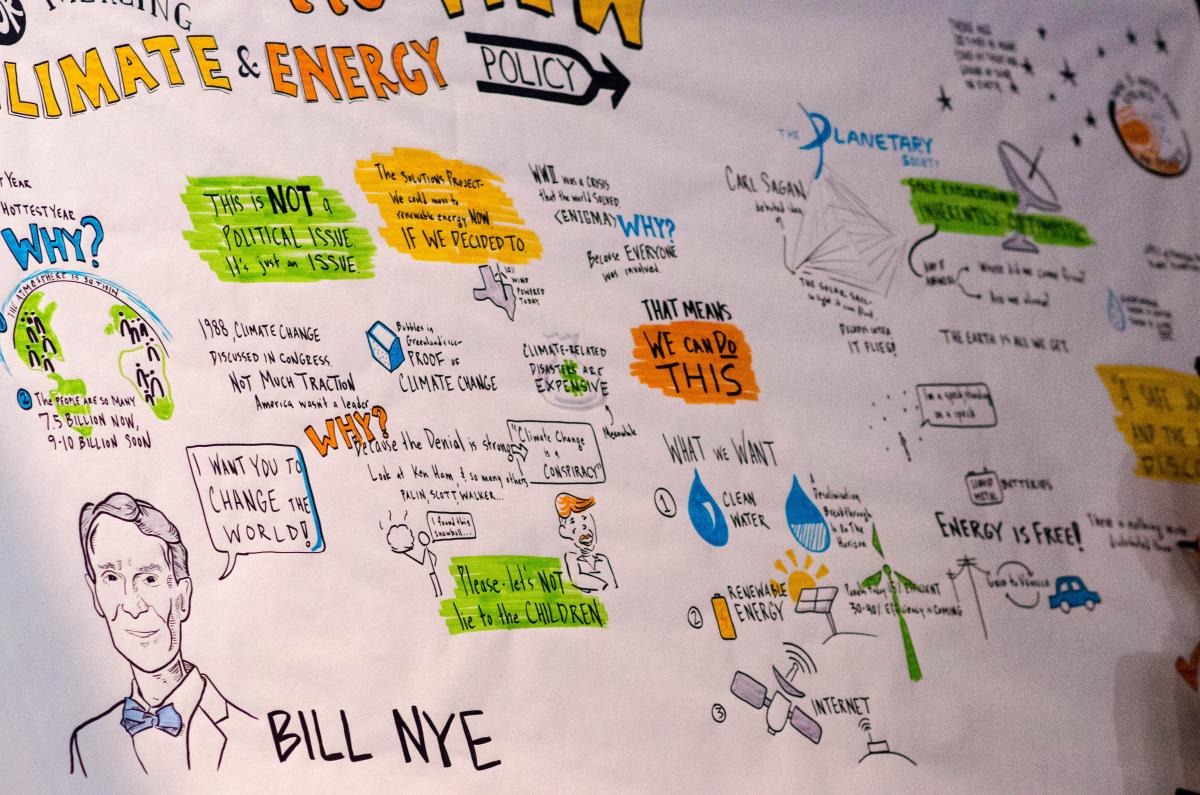 CLIMATE & ENERGY
POLICY
YEAR
HOTTEST YEAR
WHY?
THE ATMOSPHERE IS SO THIN
2 THE PEOPLE ARE SO MANY
7.5 BILLION NOW,
9-10 BILLION SOON
THIS IS NOT a
POLITICAL ISSUE.
It's just an ISSUE.
The SOLUTIONS PROJECT-
We could move to
renewable energy NOW
IF WE DECIDED TO
10%
WIND
POWERED
TODAY
WWII was a CRISIS
that the world SOLVED
<ENIGMA>
WHY?
Because EVERYONE
was involved.
1988, CLIMATE CHANGE
DISCUSSED IN CONGRESS.
NOT MUCH TRACTION
America wasn't a leader
WHY?
Because the Denial is strong
Look at Ken Ham, & so many others
PALIN, SCOTT, WALKER...
"Climate Change
is a
CONSPIRACY"
Bubbles in
Greenland's ice-
PROOF OF
CLIMATE CHANGE
CLIMATE-RELATED
DISASTERS ARE
EXPENSIVE
$
Meanwhile
THAT MEANS
WE CAN DO
THIS
I found this
snowball...
Please-let's NOT
lie to the CHILDREN
I WANT YOU TO
CHANGE THE
WORLD!
BILL NYE
THE PLANETARY
SOCIETY
CARL SAGAN
THE SOLAR SAIL-
IT FLIES!
SPACE EXPLORATION
INHERENTLY OPTIMISTIC
Where did we come from?
Are we alone?
THE EARTH IS ALL WE GET.
I'm a speck standing
on a speck
WHAT WE WANT
1 CLEAN
WATER
A
Desalination
Breakthrough
is On The
Horizon
2 RENEWABLE
ENERGY
30-40% Efficiency is COMING
3 INTERNET
LIQUID
METAL
BATTERIES
ENERGY IS FREE!
There is nothing more
GRID TO VEHICLE
"A SAFE
AND THE
DISCO